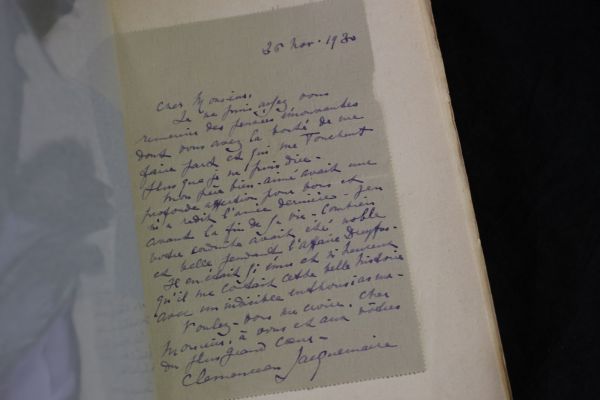 26 Nov. 1930
Cher Monsieur,
Je ne puis assez vous
remercier des pensées émouvantes
dont vous avez la bonté de me
faire part et qui me touchent
plus que je ne puis dire.
Mon père bien-aimé avait une
profonde affection pour vous et
m'a redit l'année dernière - peu
avant la fin de sa vie - combien
votre conduite avait été noble
et belle pendant l'affaire Dreyfus.
Il en était si ému et si heureux
qu'il me contait cette belle histoire
avec un indicible enthousiasme.
Voulez-vous me croire, cher
Monsieur, à vous et aux vôtres
du plus grand cœur.
Clemenceau Jacquemaire